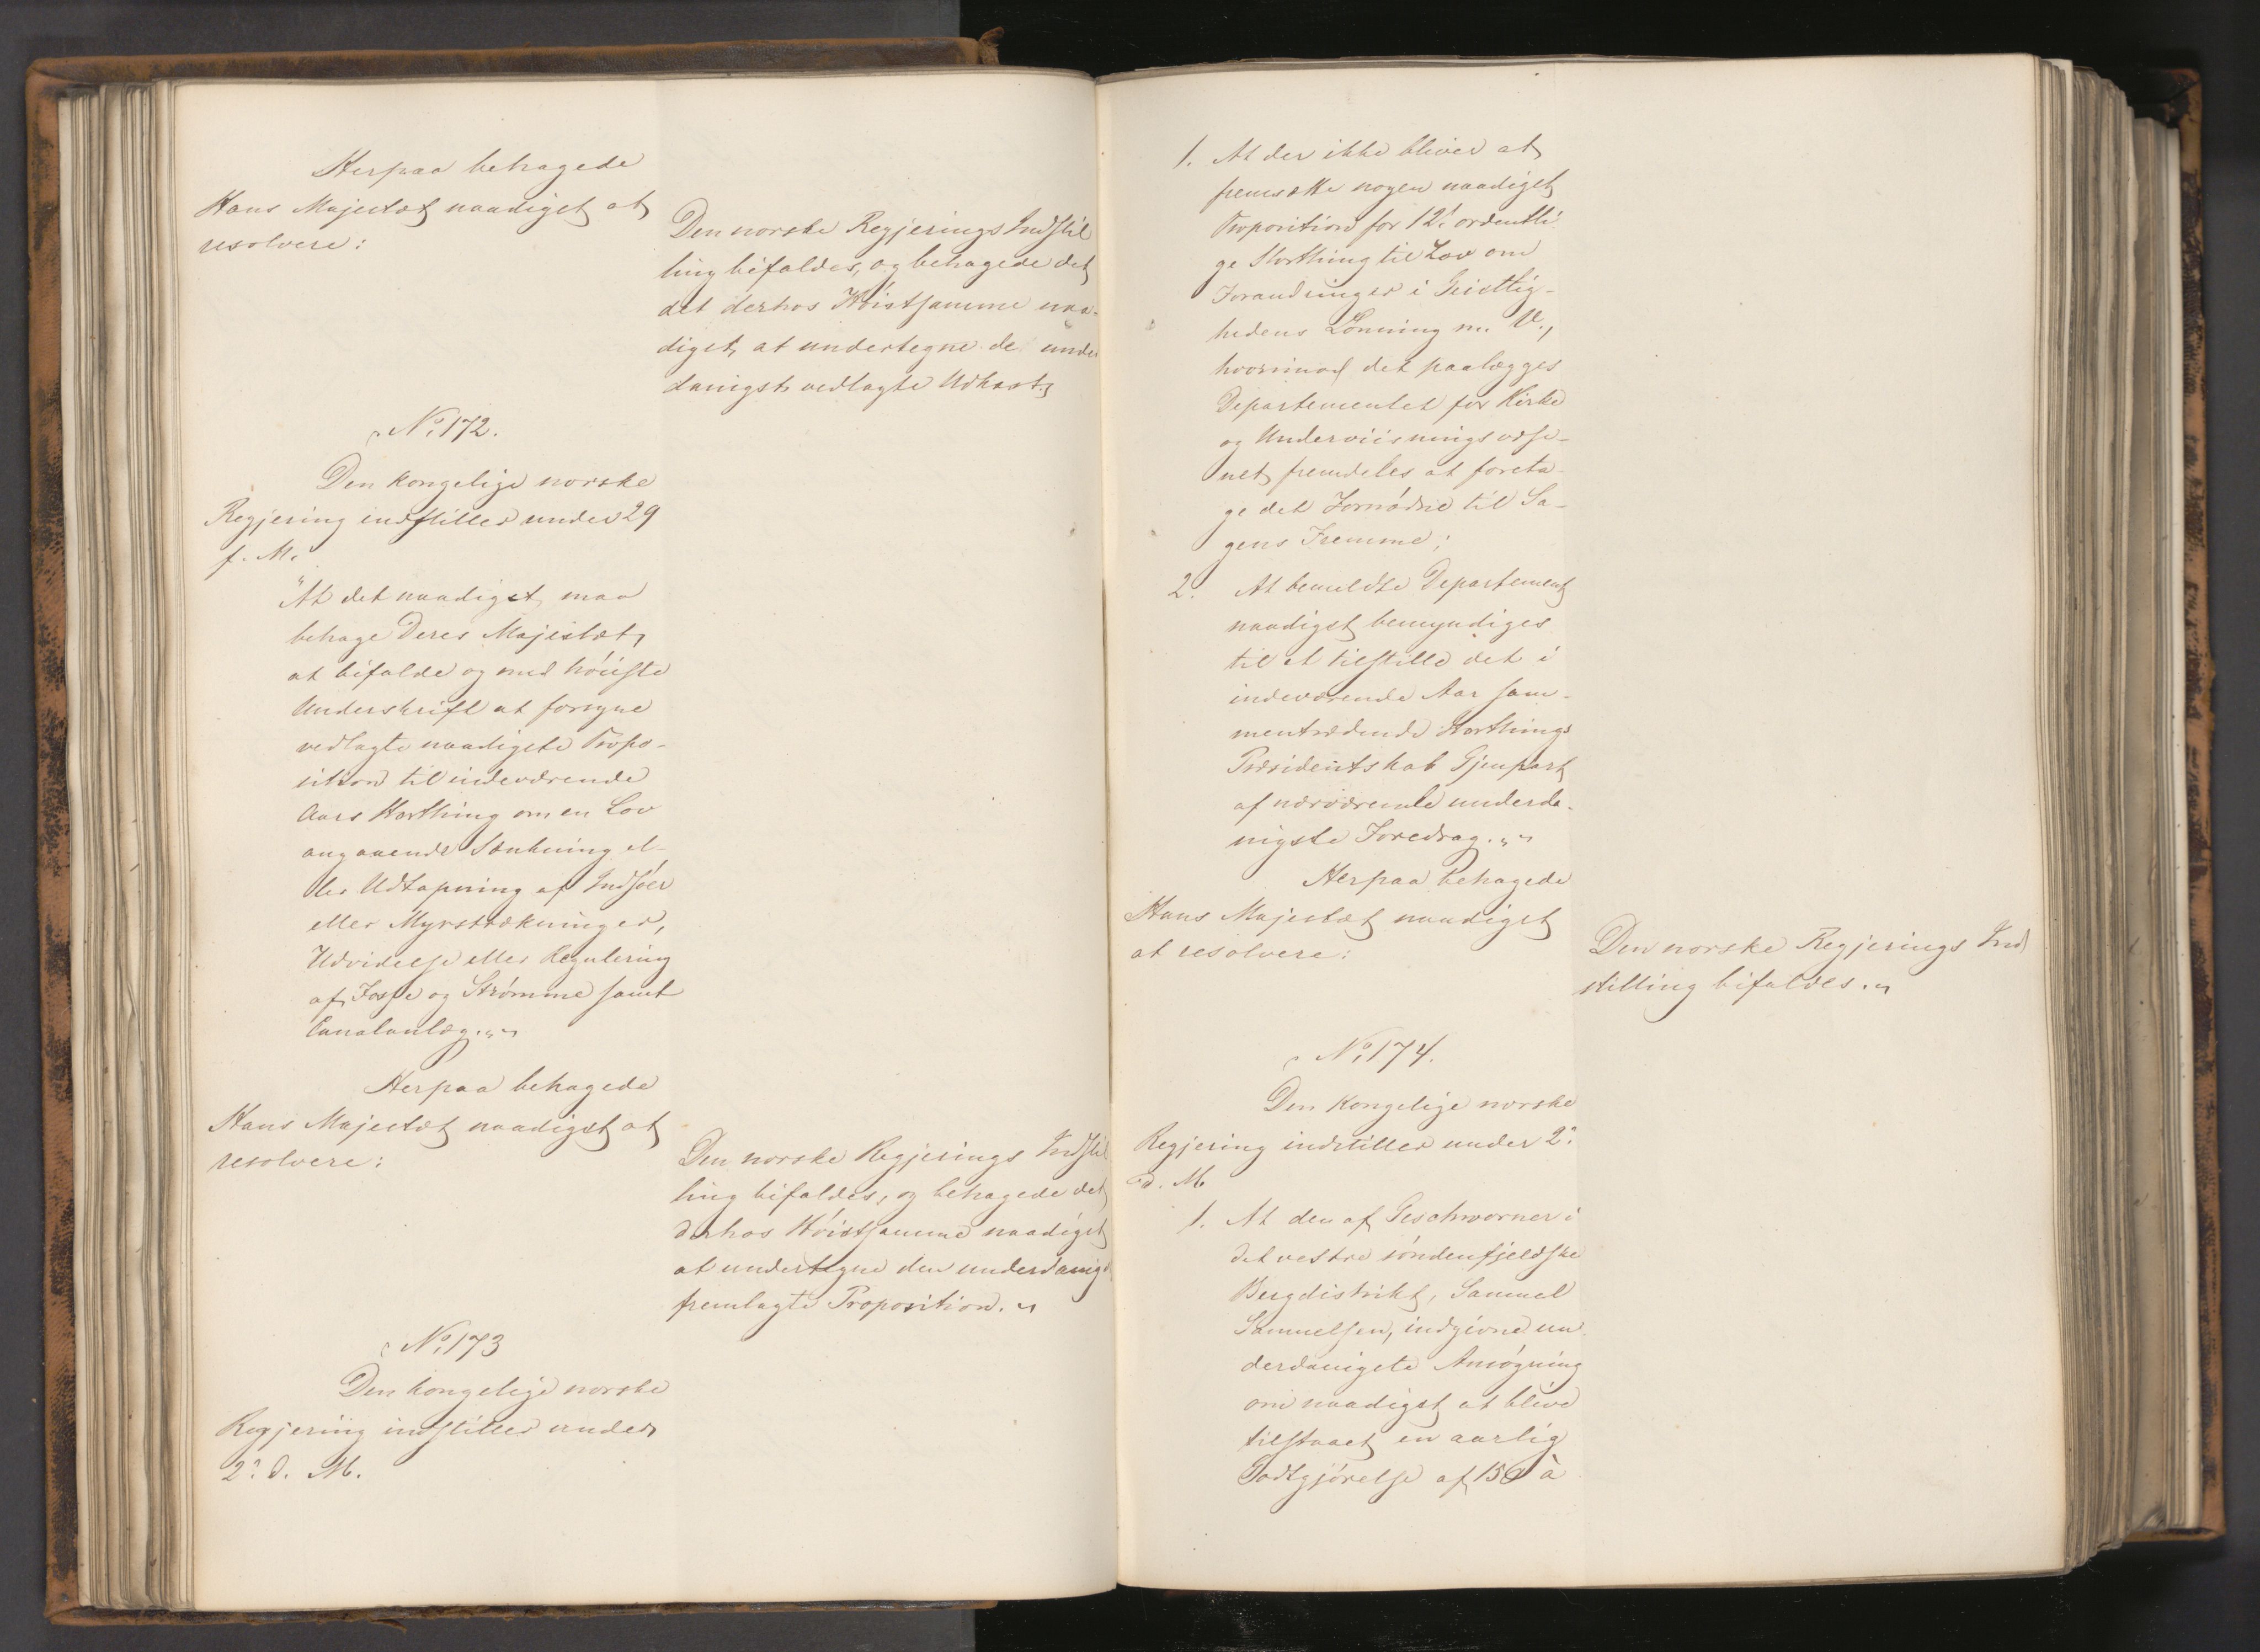 Herpaa behagede
Hans Majestæt naadigst at
resolvere:
Den norske Regjerings Indstil
ling bifaldes, og behagede det
det derhos Høistsamme naa-
digst, at undertegne de under
danigst vedlagte Udkast.
No. 172.
Den kongelige norske
Regjering indstiller under 29
f. M.
"At det naadigst maa
behage Deres Majestæt,
at bifalde og med høieste
Underskrift at forsyne
vedlagte naadigste Propo-
sition til indeværende
Aars Storthing om en Lov
angaaende Sænkning el-
ler Udtapning af Indsøer
eller Myrstrækninger,
Udvidelse eller Regulering
af Fosse og Strømme samt
Canalanlæg."
Herpaa behagede
Hans Majestæt naadigst at
resolvere:
Den norske Regjerings Indstil
ling bifaldes, og behagede det
derhos Høistsamme naadigst
at undertegne den underdanigst
fremlagte Proposition.
No. 173
Den kongelige norske
Regjering indstiller under
2. d. M.
1. At der ikke bliver at
fremsætte nogen naadigst
Proposition for 12te ordentli
ge Storthing til Lov om
Forandringer i Geistlig-
hedens Lønning m. V.,
hvorimod det paalægges
Departementet for Kirke
og Underviisningsvæse-
net fremdeles at foreta-
ge det Fornødne til Sa-
gens Fremme;
2. At bemeldte Departement
naadigst bemyndiges
til at tilstille det i
indeværende Aar sam-
mentrædende Storthings
Præsidentskab Gjenpart
af nærværende underda-
nigste Foredrag."
Herpaa behagede
Hans Majestæt naadigst
at resolvere:
Den norske Regjerings Ind
stilling bifaldes.
No. 174.
Den Kongelige norske
Regjering indstiller under 2.
d. M.
1. At den af Geschworner i
det vestre søndenfjeldske
Bergdistrikt, Samuel
Samuelsen, indgivne un
derdanigste Ansøgning
om naadigst at blive
tilstaaet en aarlig
Godtgjørelse af 150 à